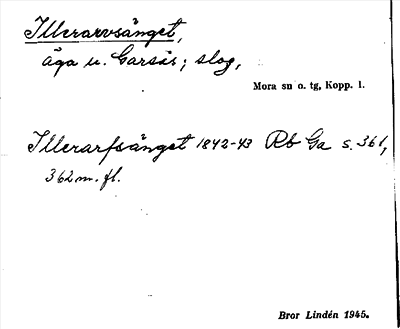 Illerarvsänget,
äga u. Garsås; slog,
Mora sn o. tg, Kopp. l.
Illerarfsänget 1842-43 Rb Ga s. 361,
362 m. fl.
Bror Lindén 1945.